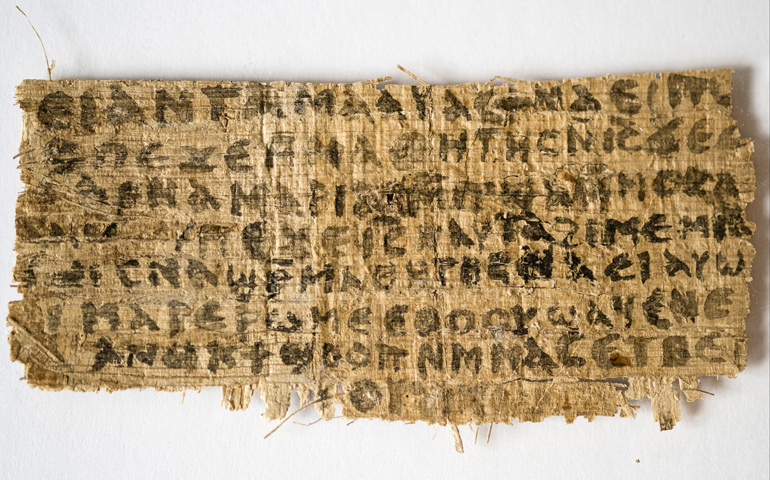 ⲉⲓ ⲁⲛ ⲧⲁⲙⲁⲁⲩ ⲁⲥϯ ⲛⲁⲉⲓ ⲡⲱ
ⲥ ⲡⲉϫⲉ ⲙⲙⲁⲑⲏⲧⲏⲥ ⲛⲓⲥ ϫⲉ ⲥ
ⲁⲣⲛⲁ ⲙⲁⲣⲓⲁⲙ ⲙⲡϣⲁ ⲙⲙⲟⲥ ⲁ
ⲡⲉϫⲉ ⲓⲥ ⲛⲁⲩ ⲧⲁϩⲓⲙⲉ ⲙⲛ
ⲥⲛⲁϣⲣⲙⲁⲑⲏⲧⲏⲥ ⲛⲁⲉⲓ ⲁⲩⲱ
ⲓ ⲙⲁⲣⲉⲣⲱⲙⲉ ⲉⲑⲟⲟⲩ ϣⲁϥⲉ ⲛⲉ
ⲁⲛⲟⲕ ϯϣⲟⲟⲡ ⲛⲙⲙⲁⲥ ⲉⲧⲃⲉ